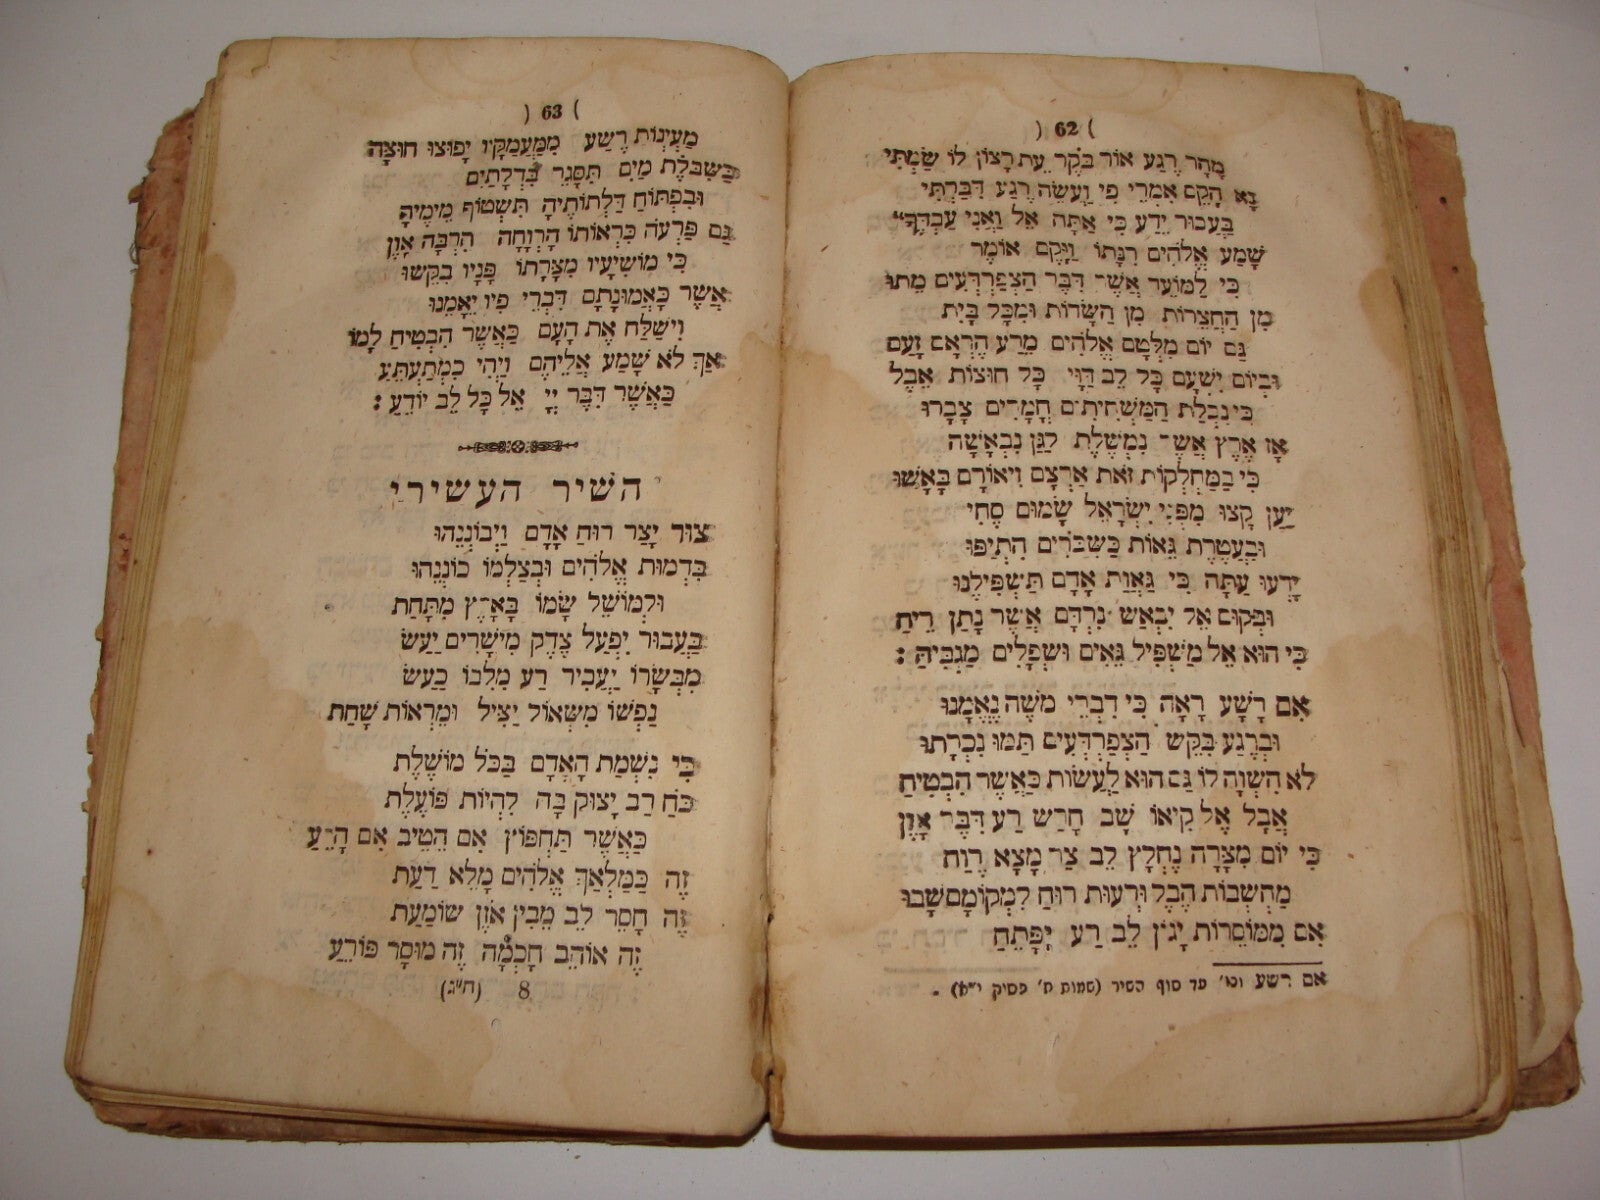 ( 62 )
מַהֵר רֶגַע אוֹר בֹּקֶר עֵת רָצוֹן לוֹ שַׂמְתִּי
נָא הָקֵם אִמְרֵי פִי וַעֲשֵׂה רֶגַע דִּבַּרְתִּי
בַּעֲבוּר יֵדַע כִּי אַתָּה אֵל וַאֲנִי עַבְדֶּךָ״
שָׁמַע אֱלֹהִים רִנָּתוֹ וַיָּקֶם אוֹמֶר
כִּי לַמּוֹעֵד אֲשֶׁר דִּבֶּר הַצְפַרְדְּעִים מֵתוּ
מִן הַחֲצֵרוֹת מִן הַשָּׂדוֹת וּמִכָּל בָּיִת
גַּם יוֹם מִלְּטָם אֱלֹהִים מֵרַע הֶרְאָם זָעַם
וּבְיוֹם יִשְׁעָם כָּל לֵב דַּוָּי כָּל חוּצוֹת אֵבֶל
כִּי נִבְלַת הַמַּשְׁחִיתִים חֳמָרִים צָבָרוּ
אָז אֶרֶץ אֲשֶׁר נִמְשֶׁלֶת לַגַּן נִבְאָשָׁה
כִּי בַמַּחְלְקוֹת זֹאת אַרְצָם וִיאוֹרָם בָּאָשׁוּ
יַעַן קָצוּ מִפְּנֵי יִשְׂרָאֵל שָׂמוּם סֶחִי
וּבַעֲטֶרֶת גֵּאוּת כַּשִּׁבֹּרִים הִתְיַפּוּ
יָדְעוּ עַתָּה כִּי גַּאֲוַת אָדָם תַּשְׁפִּילֶנּוּ
וּבְקוּם אֵל יִבְאַשׁ נִרְדָּם אֲשֶׁר נָתַן רֵיחַ
כִּי הוּא אֵל מַשְׁפִּיל גֵּאִים וּשְׁפָלִים מַגְבִּיהַּ :
אִם רָשָׁע רָאָה כִּי דִבְרֵי משֶׁה נֶאֱמָנוּ
וּבְרֶגַע בִּקֵּשׁ הַצְפַרְדְּעִים תַּמּוּ נִכְרָתוּ
לֹא הִשְׁוָה לוֹ גַּם הוּא לַעֲשׂוֹת כַּאֲשֶׁר הִבְטִיחַ
אֲבָל אֶל קִיאוֹ שָׁב חָרַשׁ רַע דִּבֶּר אָוֶן
כִּי יוֹם מִצָּרָה נֶחְלָץ לֵב צַר מָצָא רֶוַח
מַחְשְׁבוֹת הֶבֶל וּרְעוּת רוּחַ לִמְקוֹמָם שָׁבוּ
אִם מִמּוֹסֵרוֹת יָגוֹן לֵב רַע יְפַתֵּחַ
אם רשע וכו׳ עד סוף השיר (שמות ח׳ פסיק י״א) .
( 63 )
מַעְיְנוֹת רֶשַׁע מִמַּעֲמַקָּיו יָפוּצוּ חוּצָה
כְּשִׁבֹּלֶת מַיִם תִּסָּגֵר בִּדְלָתַיִם
וּבִפְתוֹחַ דַּלְתוֹתֶיהָ תִּשְׁטוֹף מֵימֶיהָ
גַּם פַּרְעֹה כִּרְאוֹתוֹ הָרְוָחָה הִרְבָּה אָוֶן
כִּי מוֹשִׁיעָיו מִצָּרָתוֹ פָּנָיו בִּקֵּשׁוּ
אֲשֶׁר כָּאֱמוּנָתָם דִּבְרֵי פִיו יֵאָמֵנוּ
וִישַׁלַּח אֶת הָעָם כַּאֲשֶׁר הִבְטִיחַ לָמוֹ
אַךְ לֹא שָׁמַע אֲלֵיהֶם וַיְהִי כִּמְתַעְתֵּעַ
כַּאֲשֶׁר דִּבֶּר יְיָ אֵל כָּל לֵב יוֹדֵעַ :
השיר העשירי
צוּר יָצַר רוּחַ אָדָם וַיְבוֹנְנֵהוּ
בִּדְמוּת אֱלֹהִים וּבְצַלְמוֹ כוֹנְנֵהוּ
וּלְמוֹשֵׁל שָׂמוֹ בָּאָרֶץ מִתָּחַת
בַּעֲבוּר יִפְעַל צֶדֶק מֵישָׁרִים יַעַשׂ
מִבְּשָׂרוֹ יַעֲבִיר רַע מִלִּבּוֹ כַעַשׂ
נַפְשׁוֹ מִשְּׁאוֹל יַצִּיל וּמֵרְאוֹת שָׁחַת
כִּי נִשְׁמַת הָאָדָם בַּכֹּל מוֹשֶׁלֶת
כֹּחַ רַב יָצוּק בָּהּ לִהְיוֹת פּוֹעֶלֶת
כַּאֲשֶׁר תַּחְפּוֹץ אִם הֵטִיב אִם הָרֵעַ
זֶה כַּמַּלְאַךְ אֱלֹהִים מָלֵא דַעַת
זֶה חָסֵר לֵב מֵבִין אֹזֶן שׁוֹמַעַת
זֶה אוֹהֵב חָכְמָה זֶה מוּסָר פּוֹרֵעַ
8 (ח״ג)